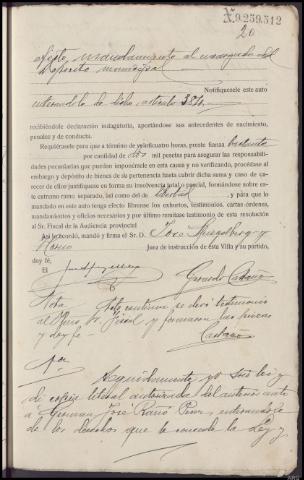 N.9.259.512
20
efecto, mandamiento al encargado del
depósito municipal
Notifíquesele este auto
artículo 384
recibiéndole declaración indagatoria, aportándose sus antecedentes de nacimiento,
penales y de conducta.
Requiérasele para que á término de veinticuatro horas, preste fianza bastante
por cantidad de dos mil pesetas para asegurar las responsabilidades
pecuniarias que puedan imponérsele en esta causa y no verificando, procédase al
embargo y depósito de bienes de su pertenencia hasta cubrir dicha suma y caso de carecer
de ellos justifíquese en forma su insolvencia total ó parcial, formándose sobre este
extremo ramo separado, así como del de libertad y para que lo
mandado en este auto tenga efecto líbrense los exhortos, testimonios, cartas órdenes,
mandamientos y oficios necesarios y por último remítase testimonio de esta resolución
al Sr. Fiscal de la Audiencia provincial
Así lo acordó, mandó y firma el Sr. D. José
Juez de instrucción de esta Villa y su partido,
doy fé.
El
Gerardo
Nota
al Ilmo Sr. Fiscal y formaron las piezas
y doy fé
Seguidamente yo
de copia literal autorizada del anterior auto
a German José Rano enterándole
de los derechos que le concede la Ley y